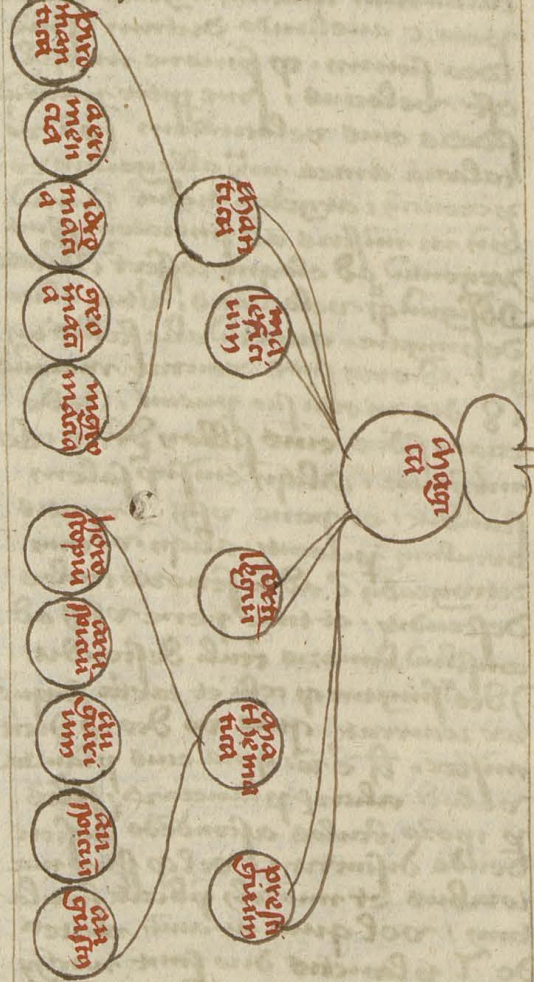 piro
man
tica
aeri
man
cia
idro
mā
a
geo
mā
a
nigro
man
tica
mal
efici
um
Magi
ca
horo
scopiū
aru
spiciū
au
guri
um
au
spiciū
au
sorti
legiū
ma
thema
tica
presti
gium